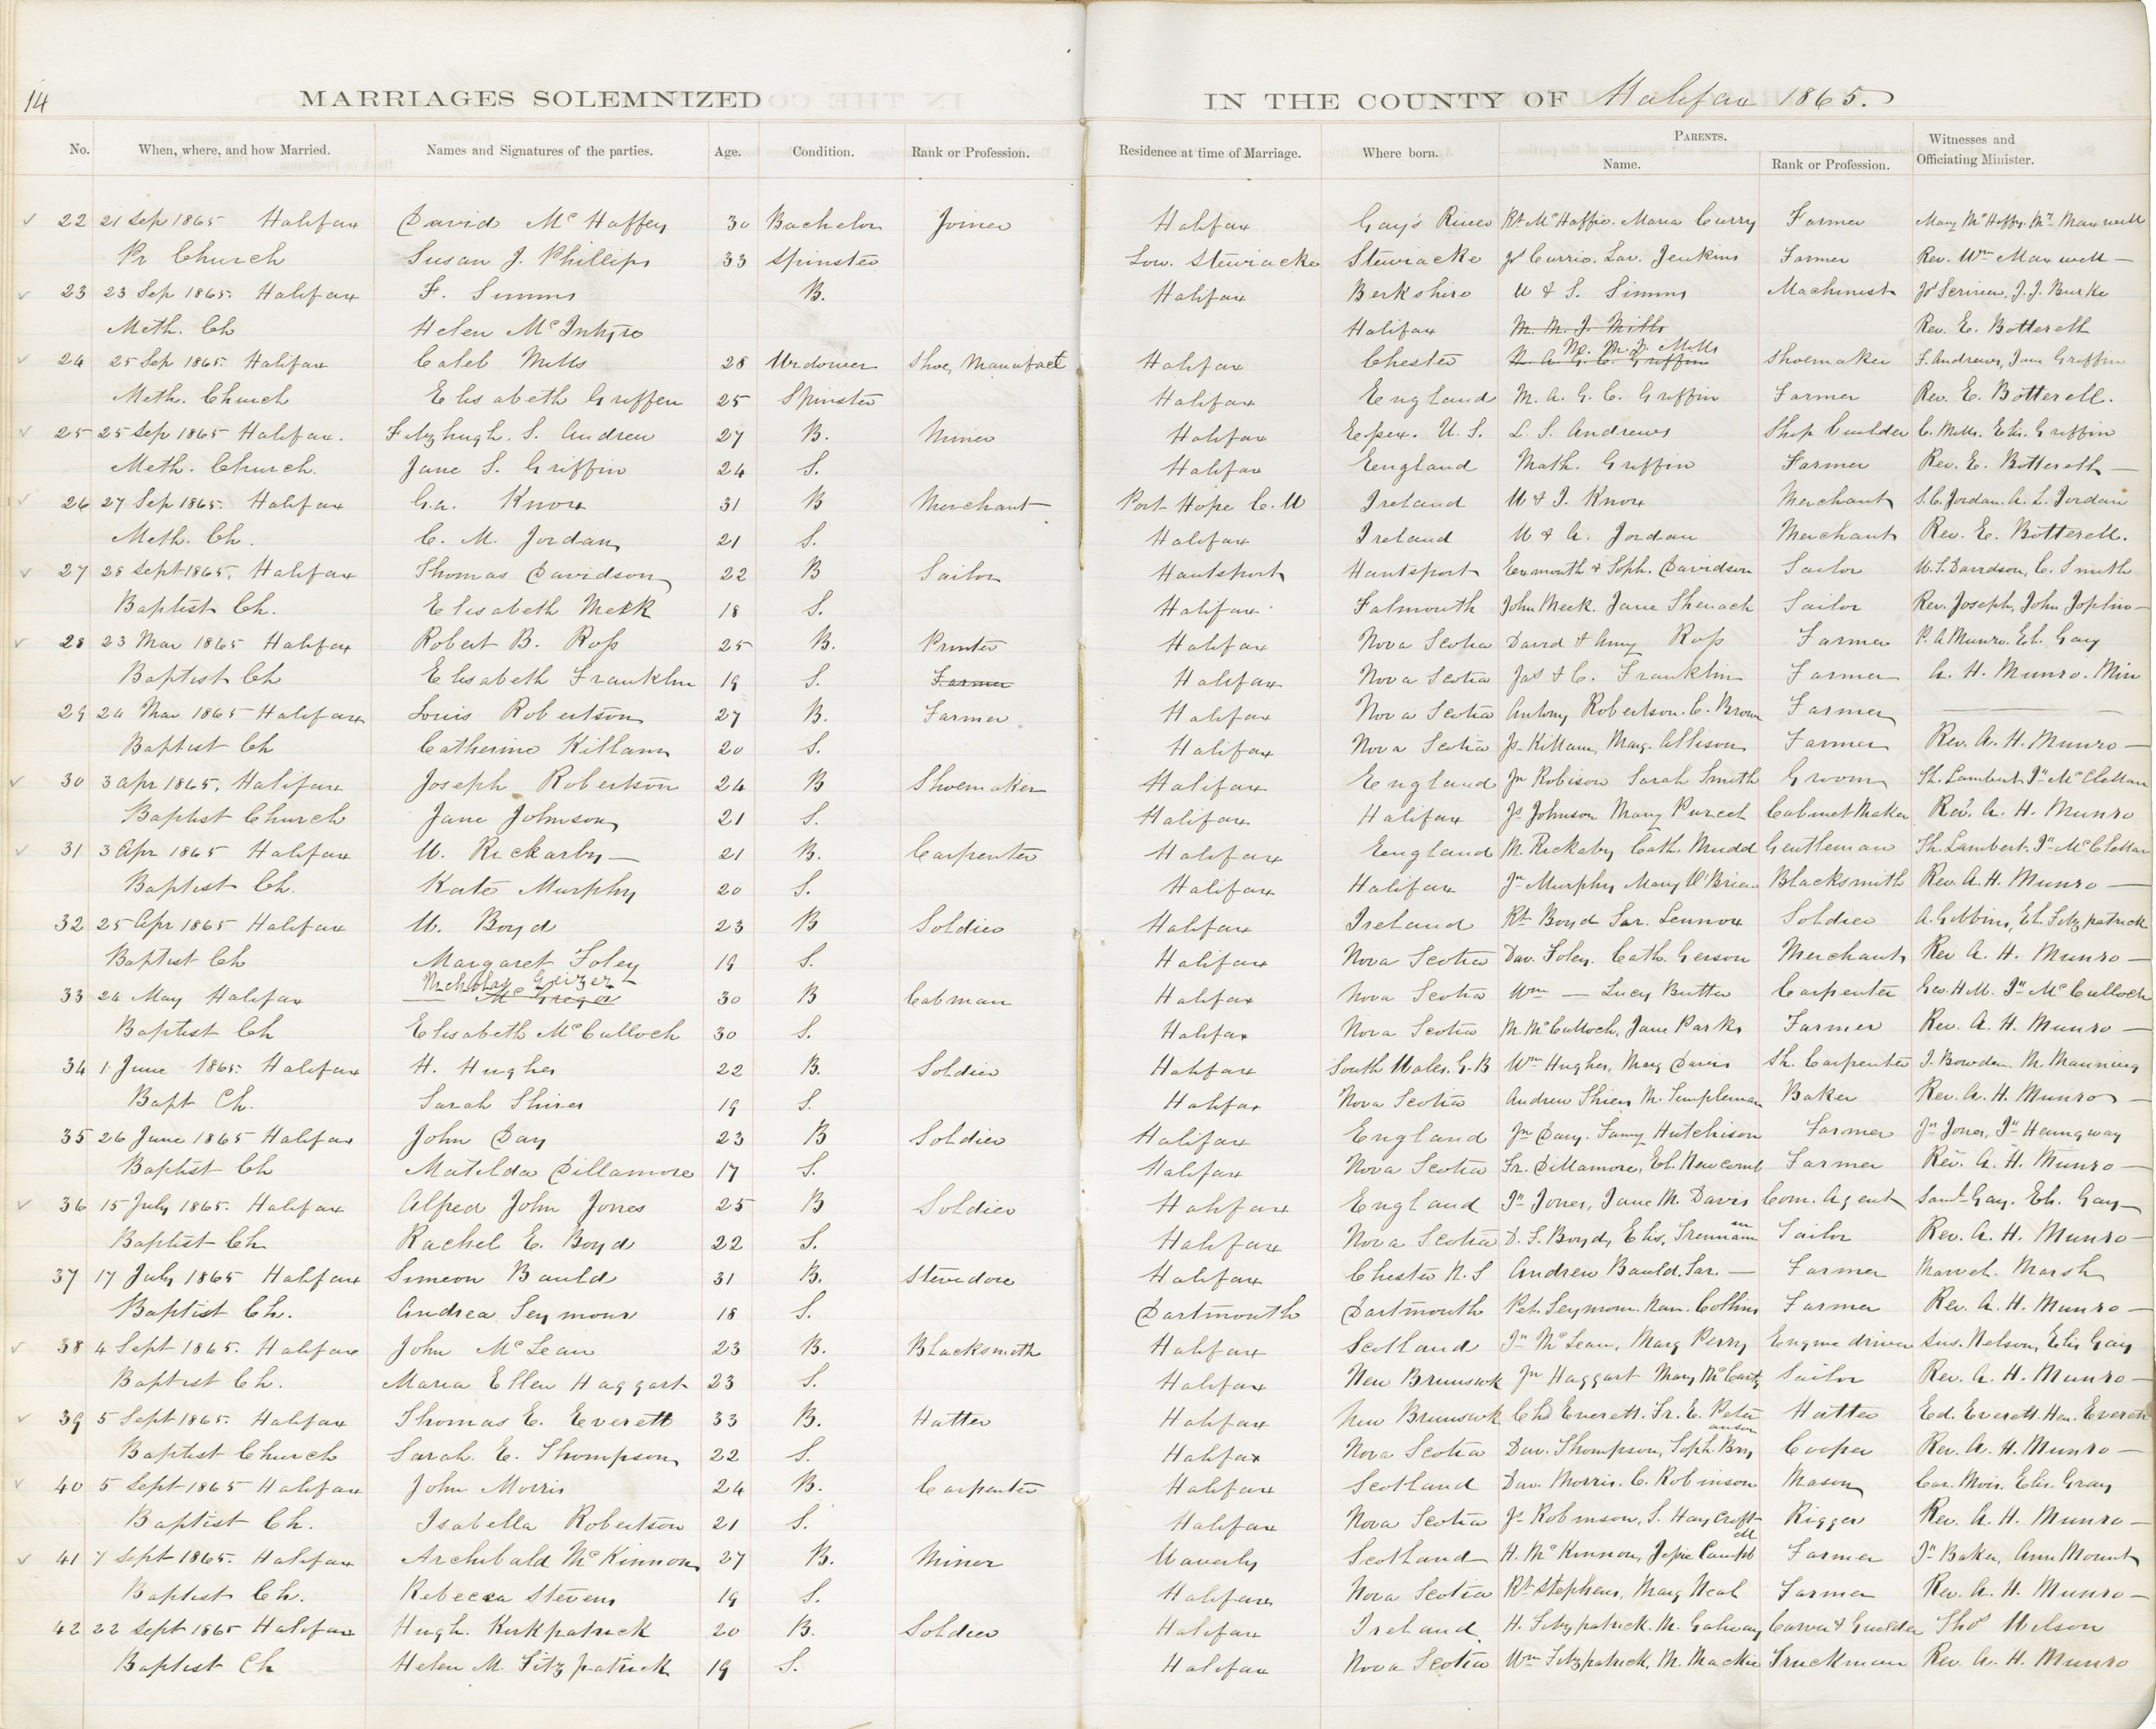 14
MARRIAGES SOLEMNIZED IN THE COUNTY OF Halifax 1865.
No. When, where, and how Married. Names and Signatures of the parties. Age. Condition. Rank or Profession. Residence at time of Marriage. Where born. PARENTS. Name. Rank or Profession. Witnesses and Officiating Minister.
22 21 Sep 1865 Halifax David McHaffey 30 Bachelor Joiner Halifax Gay's River Rt McHaffie. Maria Curry Farmer Mary McHeffy. Mrs Maxwell
Pr Church Susan J. Phillips 33 Spinster Low. Stewiacke Stewiacke Js Currie. Lav. Jenkins Farmer Rev. Wm Maxwell —
23 23 Sep 1865. Halifax F. Simms B. Halifax Berkshire W & S. Simms Machinest Js Scriven, J. J. Burke
Meth. Ch Helen McIntyre Halifax M. M. J. Mills Rev. E. Botterell
24 25 Sep 1865. Halifax Caleb Mills 28 Widower Shoe, Manufact Halifax Chester M. A. G. C. Griffin M. J. Mills Shoemaker F. Andrews, Jane Griffin
Meth. Church Elisabeth Griffen 25 Spinster Halifax England M. A. G. C. Griffin Farmer Rev. E. Botterell.
25 25 Sep 1865 Halifax. Fitzhugh. S. Andrew 27 B. Miner Halifax Essex. U. S. L. S. Andrews Ship Builder C. Mills. Elis. Griffin
Meth. Church. Jane S. Griffin 24 S. Halifax Eengland Math. Griffin Farmer Rev. E. Botterell —
26 27 Sep 1865. Halifax G. a. Knox 31 B Merchant Port Hope C. W Ireland W & J. Knox Merchant S. C. Jordan. A. L. Jordan
Meth. Ch. C. M. Jordan 21 S. Halifax Ireland W & A. Jordan Merchant Rev. E. Botterell.
27 28 Sept 1865. Halifax Thomas Davidson 22 B Sailor Hantsport Hantsport Exmouth & Soph. Davidson Sailor W. S. Davidson, C. Smith
Baptist Ch. Elisabeth Meek 18 S. Halifax Falmouth John Meek. Jane Sherack Sailor Rev. Joseph, John Joplin —
28 23 Mar 1865 Halifax Robert B. Ross 25 B. Printer Halifax Nova Scotia David & Amy Ross Farmer P. A Munro. El. Gay
Baptist Ch Elisabeth Franklin 19 S. Farmer Halifax Nova Scotia Jas & C. Franklin Farmer A. H. Munro. Min
29 24 Mar 1865 Halifax Louis Robertson 27 B. Farmer Halifax Nova Scotia Antony Robertson. C. Brown Farmer —
Baptist Ch Catherine Killam 20 S. Halifax Nova Scotia Js Killam, Marg. Allison Farmer Rev. A. H. Munro —
30 3 apr 1865. Halifax Joseph Robertson 24 B Shoemaker Halifax England Jn Robison Sarah Smith Groom Th. Lambert Jn McClellan
Baptist Church Jane Johnson 21 S. Halifax Halifax Js Johnson Mary Purcell Cabinet Maker Rev. A. H. Munro
31 3 Apr 1865 Halifax W. Rickarby — 21 B. Carpenter Halifax Eengland M. Rickaby Cath. Mudd Gentleman Th. Lambert. Jn McClellan
Baptist Ch. Kate Murphy 20 S. Halifax Halifax Jn Murphy Mary O'Brien Blacksmith Rev. A. H. Munro —
32 25 Apr 1865 Halifax W. Boyd 23 B Soldier Halifax Ireland Rt Boyd Sar. Lennox Soldier A. Gibbins, El. Fitzpatrick
Baptist Ch Margaret Foley 19 S. Halifax Nova Scotia Dav. Foley. Cath. Gerson Merchant Rev A. H. Munro —
Nicholas Geizer
33 24 May Halifax McGregor 30 B Cabman Halifax Nova Scotia Wm — Lucy Butler Carpenter Geo. H M. Jn McCulloch
Baptist Ch Elisabeth McCulloch 30 S. Halifax Nova Scotia M. McCulloch, Jane Parks Farmer Rev. A. H. Munro —
34 1 June 1865. Halifax H. Hughes 22 B. Soldier Halifax South Wales. G. B Wm Hughes, Mary Davis Sh. Carpenter J. Bowden. M. Manning
Bapt Ch. Sarah Shires 19 S. Halifax Nova Scotia Andrew Shiers M. Templeman Baker Rev. A. H. Munro —
35 26 June 1865 Halifax John Day 23 B Soldier Halifax England Jn Day. Fanny Hutchison Farmer Jn Jones, Jn Hemgway
Baptist Ch Matilda Dillamore 17 S. Halifax Nova Scotia Fr. Dillamore, El. Newcomb Farmer Rev. A. H. Munro —
36 15 July 1865. Halifax Alfred John Jones 25 B Soldier Halifax England Jn Jones, Jane M. Davis Com. Agent Saml Gay. Eli. Gay
Baptist Ch Rachel E. Boyd 22 S. Halifax Nova Scotia D. F. Boyd, Elis. Trennam Sailor Rev. A. H. Munro —
37 17 July 1865 Halifax Simeon Bauld 31 B. Stevedore Halifax Chester N. S Andrew Bauld. Sar. — Farmer Marsh
Baptist Ch. Andrea Seymour 18 S. Dartmouth Dartmouth Pet. Seymour. Nan. Collins Farmer Rev. A. H. Munro —
38 4 Sept 1865. Halifax John McLean 23 B. Blacksmith Halifax Scotland Jn McLean, Marg Perry Engine driver Sus. Nelson, Elis Gay
Baptist Ch. Maria Ellen Haggart 23 S. Halifax New Brunswk Jn Haggart Mary McCarty Sailor Rev. A. H. Munro —
39 5 Sept 1865. Halifax Thomas E. Everett 33 B. Hatter Halifax New Brunswk Chs Everett. Fr. E. Peters Hatter Ed. Everett. Hen. Everett
Baptist Church Sarah. E. Thompson 22 S. Halifax Nova Scotia Dav. Thompson, Soph. Bryanson Cooper Rev. A. H. Munro —
40 5 Sept 1865 Halifax John Morris 24 B. Carpenter Halifax Scotland Dav. Morris. C. Robinson Mason Car. Elis. Gray
Baptist Ch. Isabella Robertson 21 S. Halifax Nova Scotia Js Robinson, S. Haycroft Rigger Rev. A. H. Munro —
41 7 Sept 1865. Halifax Archibald McKinnon 27 B. Miner Waverly Scotland H. McKinnon, Jessie Campbell Farmer Jn Baker, Ann Mount
Baptist Ch. Rebecca Stevens 19 S. Halifax Nova Scotia Rt Stephens, Marg Neal Farmer Rev. A. H. Munro —
42 22 Sept 1865 Halifax Hugh. Kirkpatrick 20 B. Soldier Halifax Ireland H. Fitzpatrick. M. Galway Carver & Guilder Thos Wilson
Baptist Ch Helen M. Fitzpatrick 19 S. Halifax Nova Scotia Wm Fitzpatrick, M. Mackie Truckman Rev. A. H. Munro